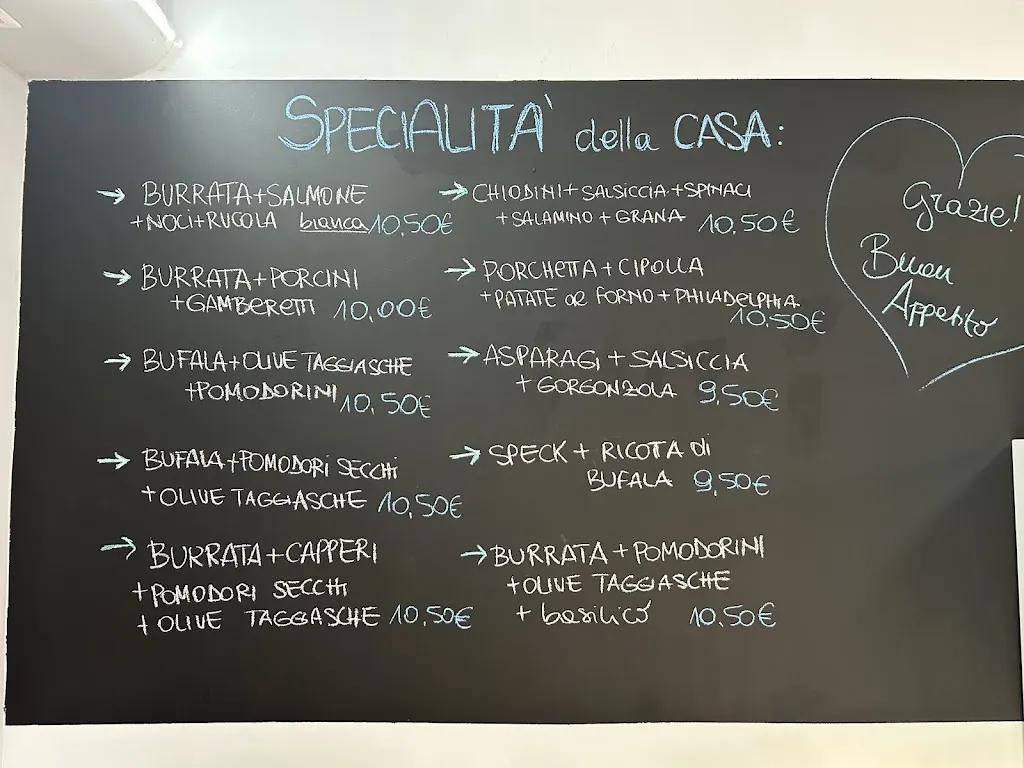 SPECIALITA' della CASA:
→ BURRATA+SALMONE
+NOCI+RUCOLA bianca 10,50€
→ BURRATA+PORCINI
+GAMBERETTI 10,00€
→ BUFALA+OLIVE TAGGIASCHE
+POMODORINI 10,50€
→ BUFALA+POMODORI SECCHI
+OLIVE TAGGIASCHE 10,50€
→ BURRATA+CAPPERI
+POMODORI SECCHI
+ OLIVE TAGGIASCHE 10,50€
→ CHIODINI+SALSICCIA+SPINACI
+SALAMINO+GRANA 10.50€
→ PORCHETTA+CIPOLLA
+PATATE al FORNO+PHILADELPHIA
10.50€
→ ASPARAGI+SALSICCIA
+GORGONZOLA 9,50€
→ SPECK+RICOTA di
BUFALA 9,50€
→ BURRATA+POMODORINI
+OLIVE TAGGIASCHE
+ basilico 10.50€
Grazie!
Buon
Appetito